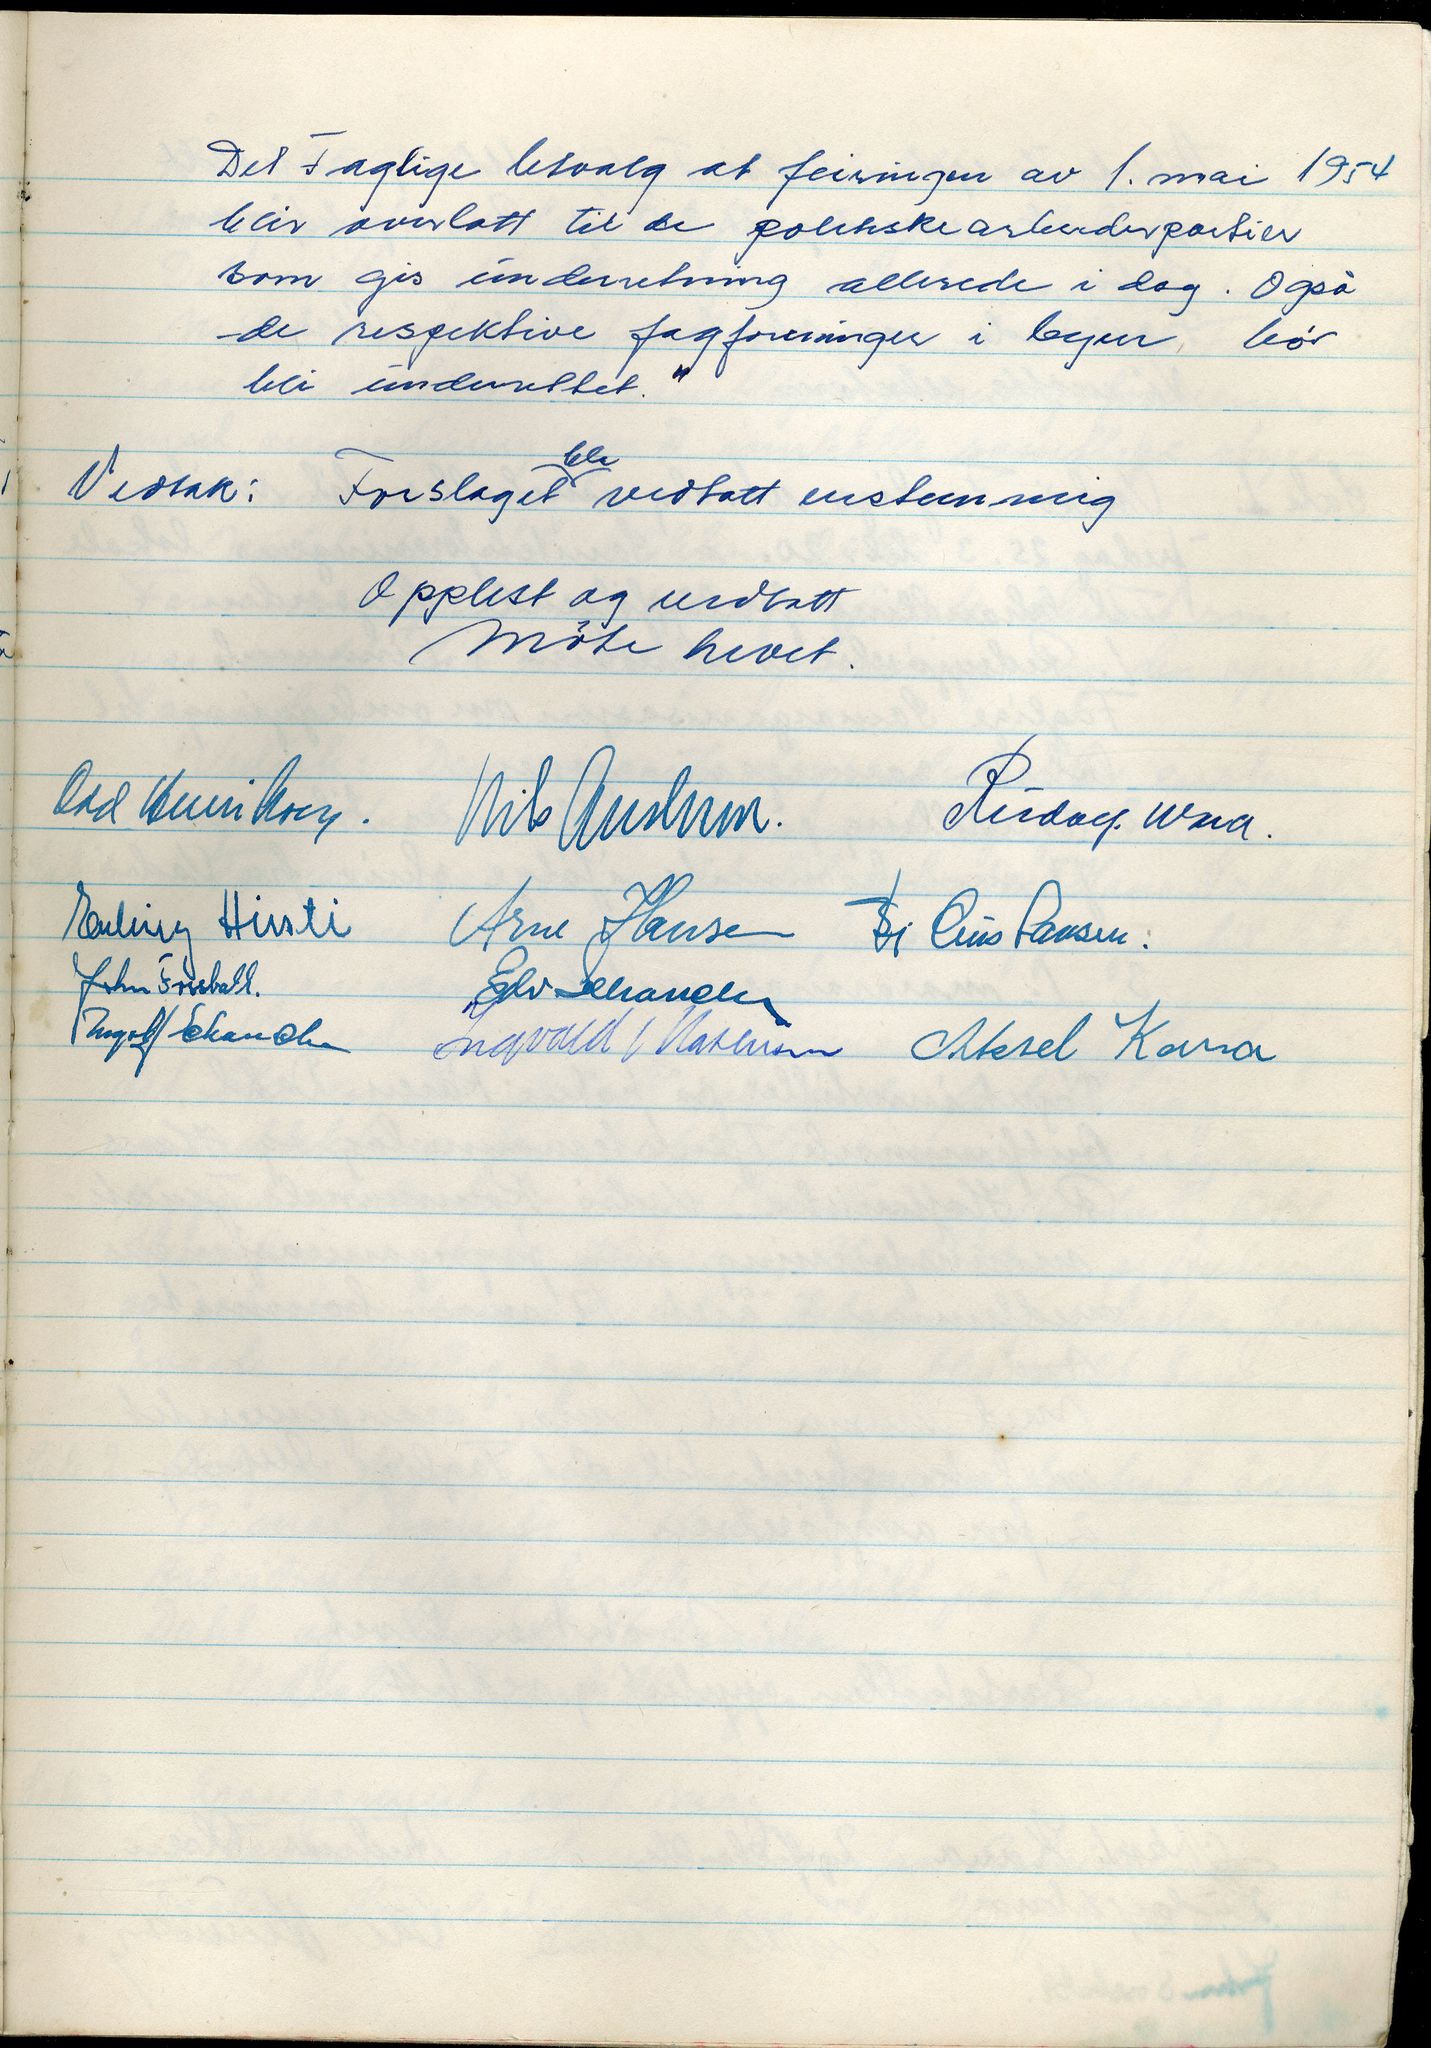 Det Faglige Utvalg at feiringen av 1. mai 1954
blir overlatt til de politiske arbeiderpartier
som gis underretning allerede i dag. Også
de respektive fagforeninger i byen, bør
bli underrettet."
Vedtak: Forslaget ble vedtatt enstemmig
Opplest og vedtatt
Møte hevet.
Odd Henriksen. Nils Andersen. Rudolf Wara.
Erling Hirsti Arne Hansen Chis Hansen.
John Edv
Ingolf Ingvald Mathisen Aksel Kana